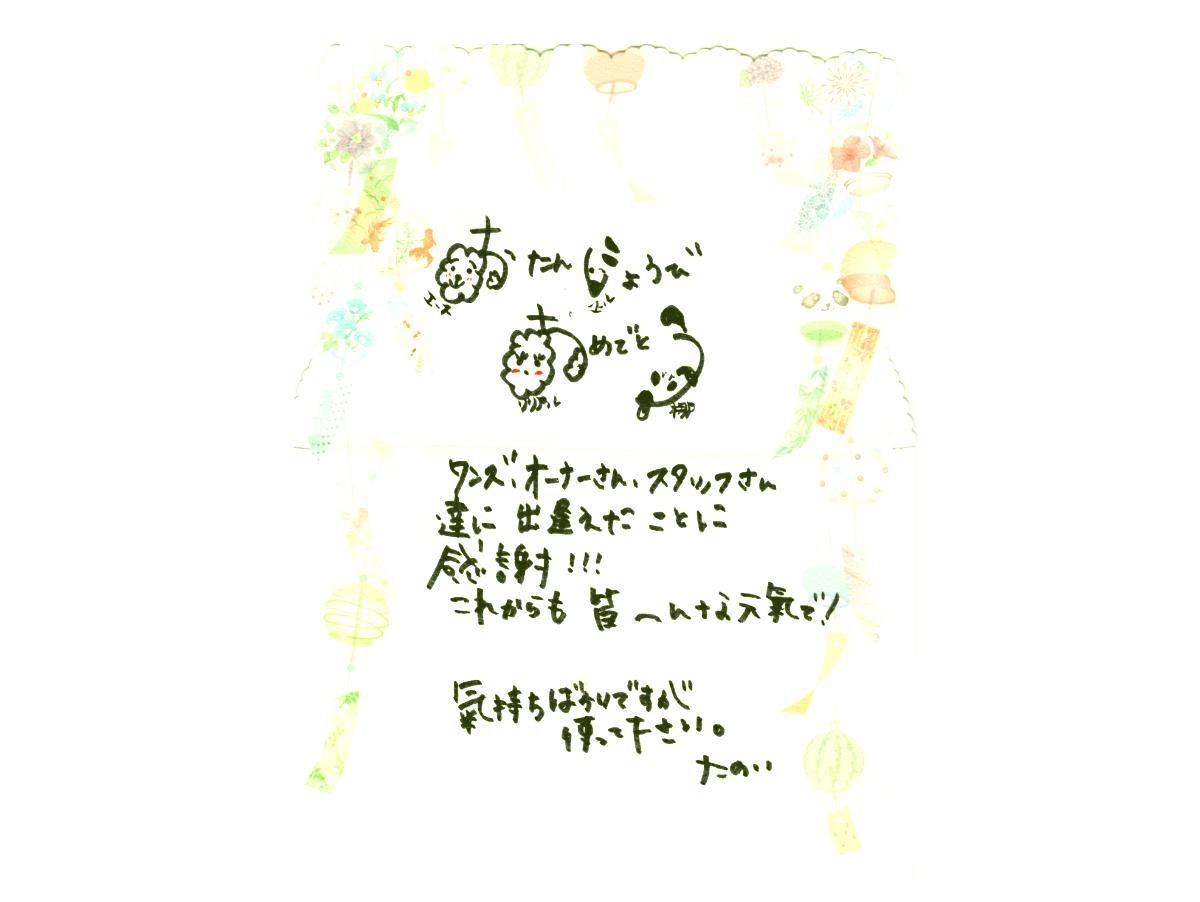 おたんじょうび
エース
おめでとう
ワンズ、オーナーさん、スタッフさん
達に 出逢えたことに
感謝!!!
これからも 皆 へんな元氣で!
氣持ちばかりですが
使って下さい。
たのい